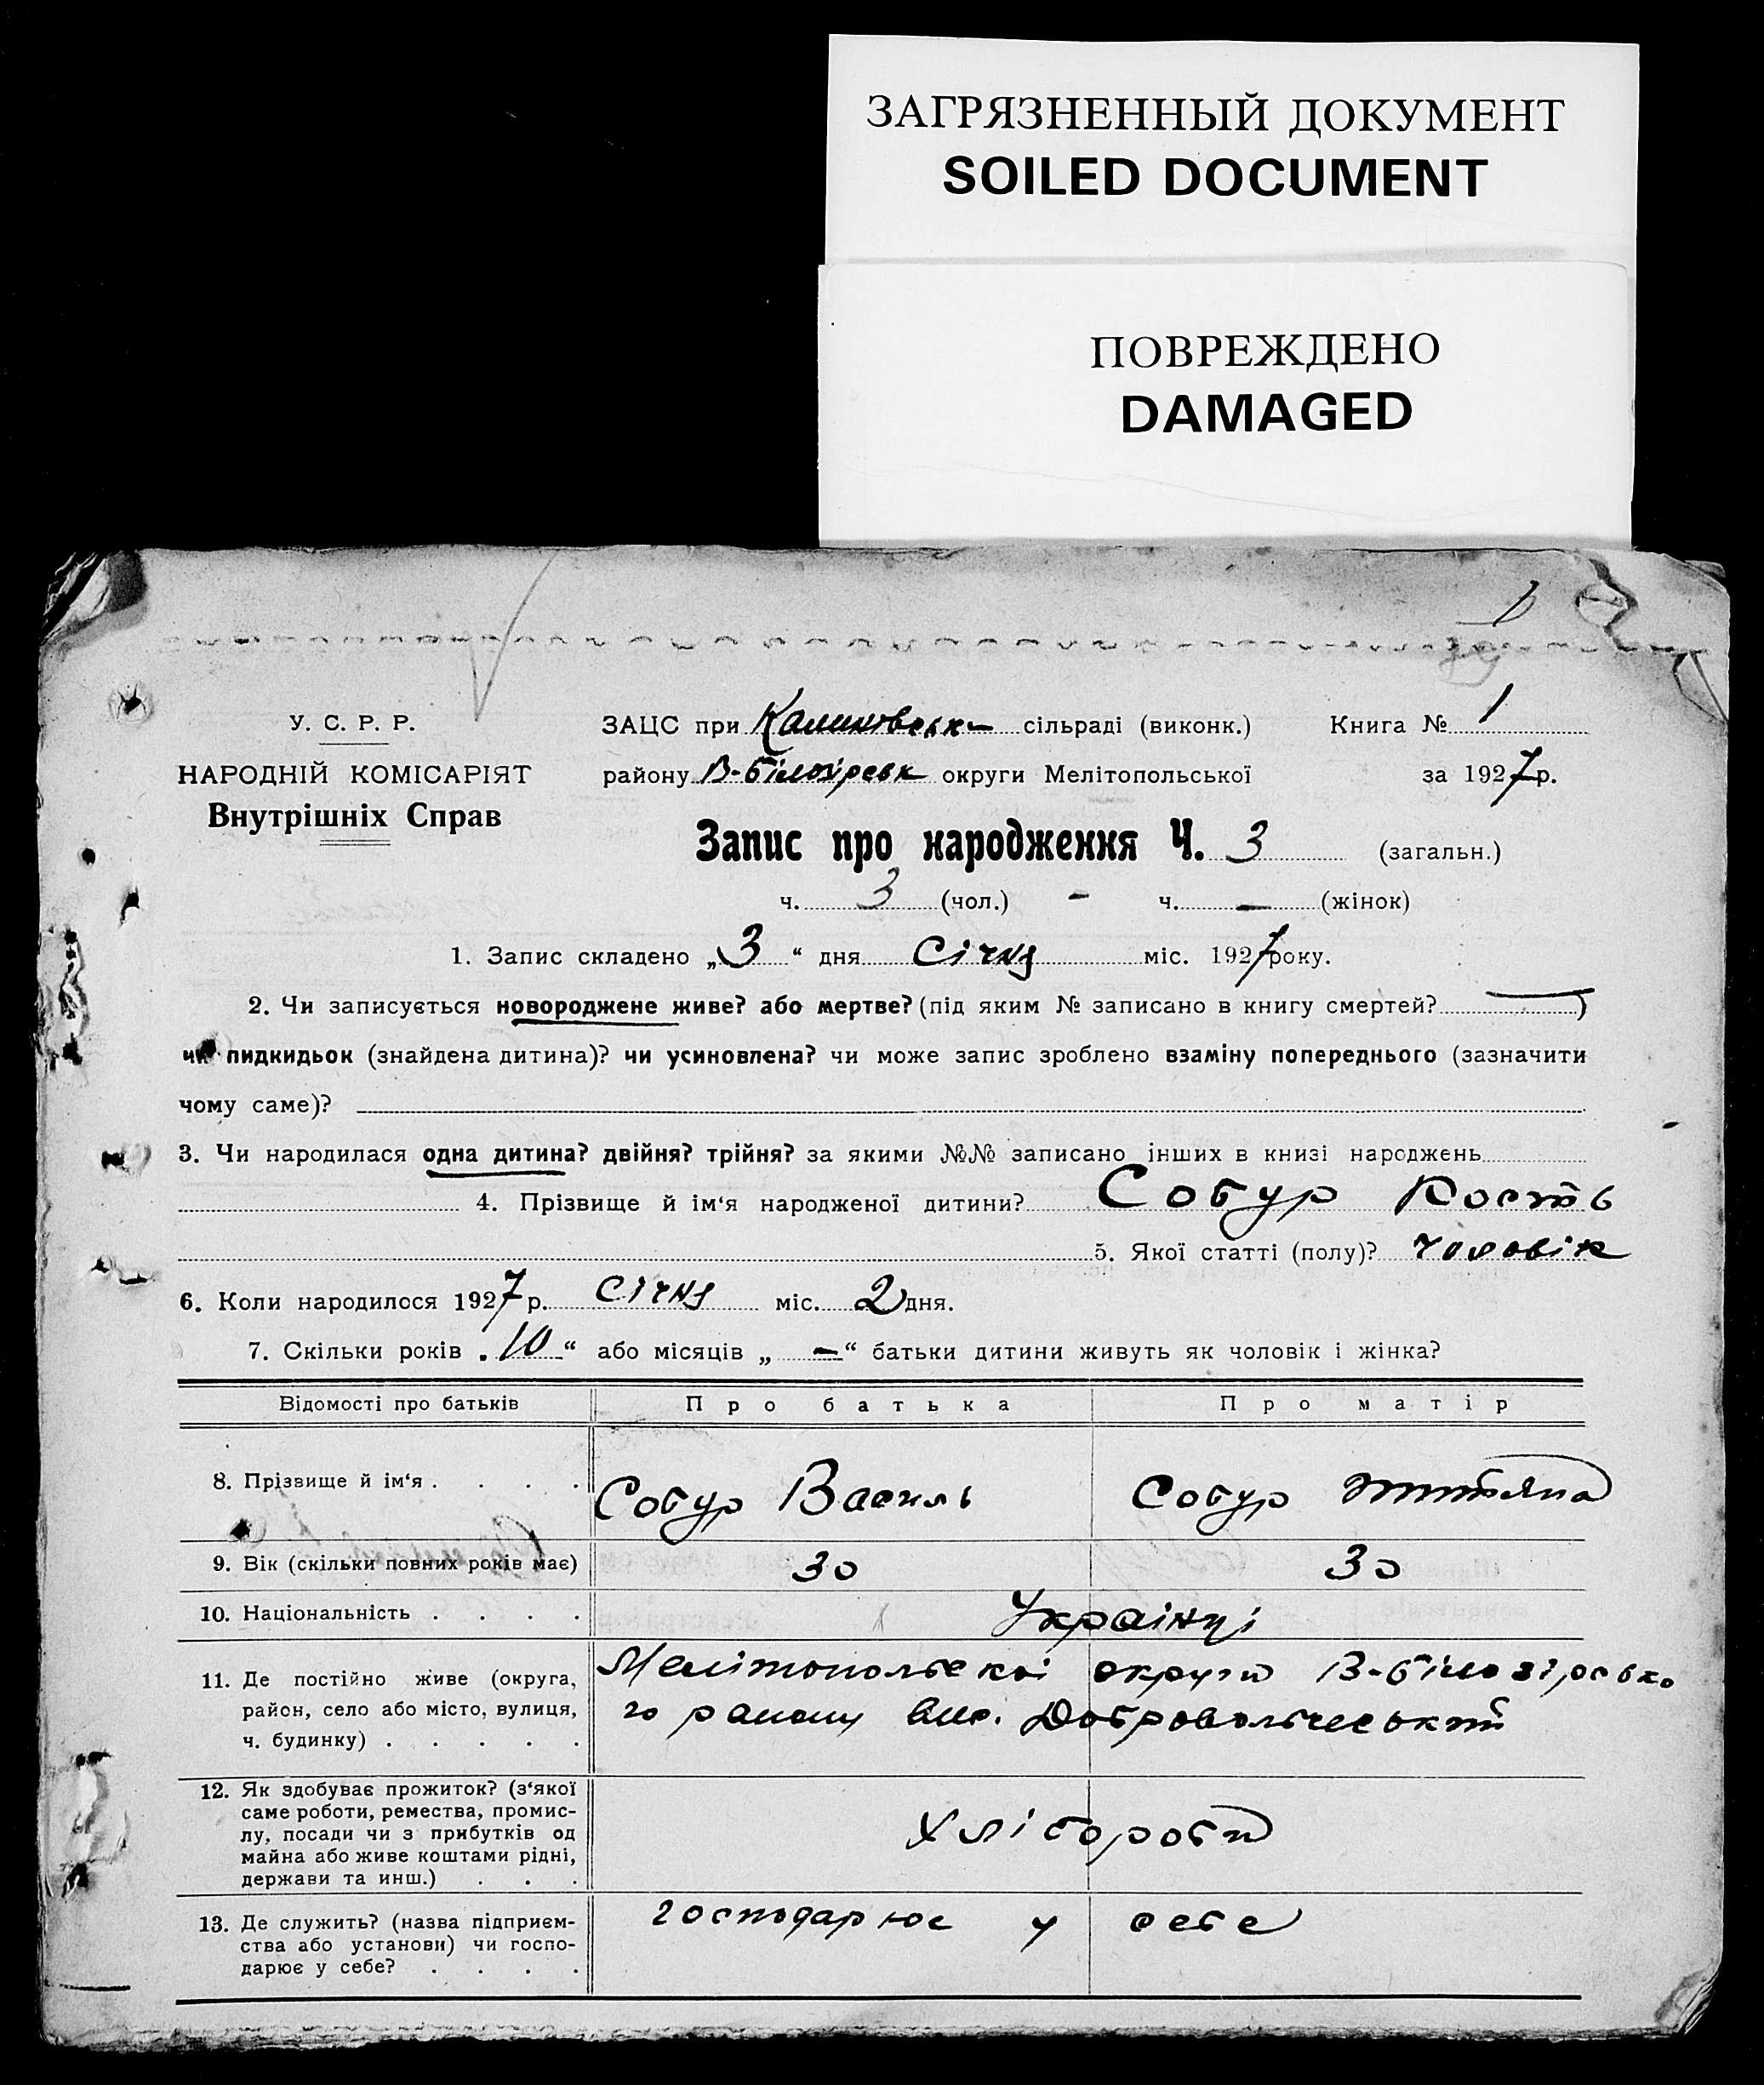 ЗАГРЯЗНЕННЫЙ ДОКУМЕНТ
SOILED DOCUMENT
ПОВРЕЖДЕНО
DAMAGED
У. С. Р. Р.
НАРОДНІЙ КОМІСАРІЯТ
Внутрішніх Справ
ЗАЦС при сільраді (виконк.) Книга № 1
району В-Білозірськ округи Мелітопольської за 1927 р.
Запис про народження Ч. 3 (загальн.)
ч. 3 (чол.) - ч. — (жінок)
1. Запис складено „3“ дня Січня міс. 1927 року.
2. Чи записується новороджене живе? або мертве? (під яким № записано в книгу смертей? —)
чи пидкидьок (знайдена дитина)? чи усиновлена? чи може запис зроблено взаміну попереднього (зазначити
чому саме)?
3. Чи народилася одна дитина? двійня? трійня? за якими №№ записано інших в книзі народжень
4. Прізвище й ім‘я народженої дитини? Собур Кость
5. Якої статті (полу)? чоловік
6. Коли народилося 1927 р. Січня міс. 2 дня.
7. Скільки років „10“ або місяців „—“ батьки дитини живуть як чоловік і жінка?
Відомості про батьків Про батька Про матір
8. Прізвище й ім‘я . . . . Собур Василь Собур
9. Вік (скільки повних років має) 30 30
10. Національність . . . . Українці
11. Де постійно живе (округа, район, село або місто, вулиця, ч. будинку) . . . . .
Мелітопольскої округи В-Білозірсько
го району
12. Як здобуває прожиток? (з‘якої саме роботи, ремества, промислу, посади чи з прибутків од майна або живе коштами рідні, держави та инш.) . . .
Хлібороби
13. Де служить? (назва підприємства або установи) чи господарює у себе? . . . .
господарює у себе